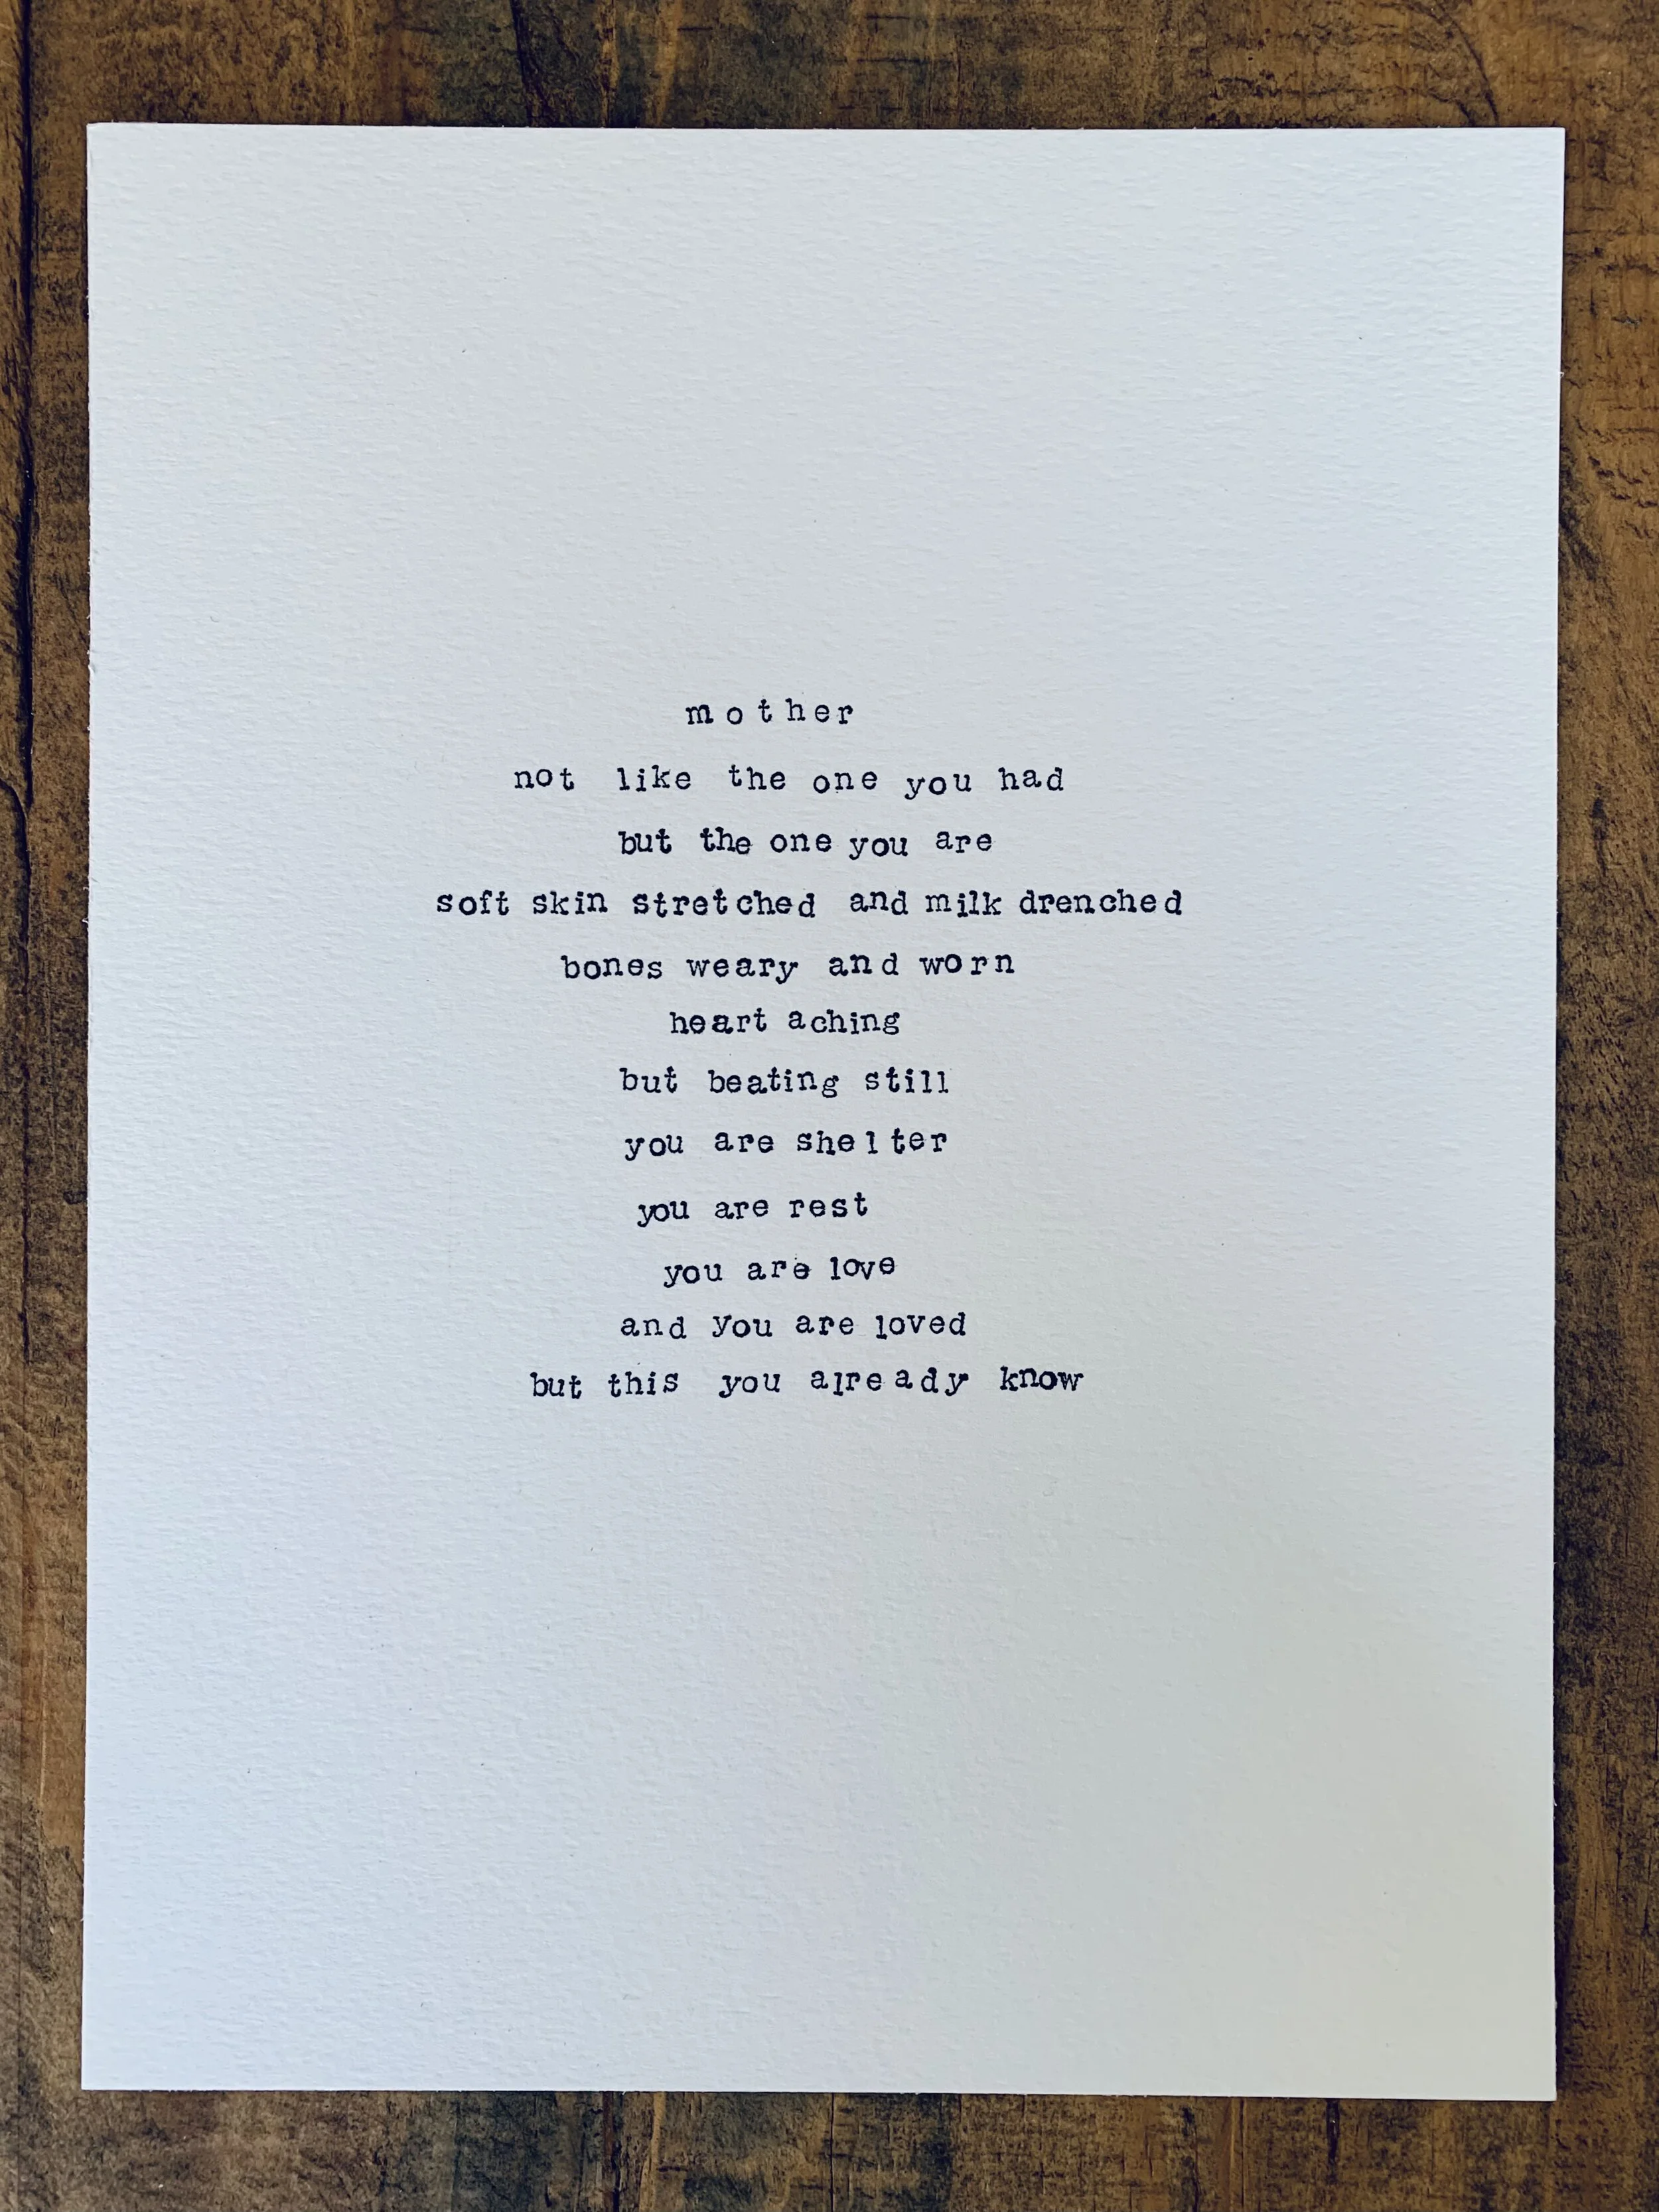 mother
not like the one you had
but the one you are
soft skin stretched and milk drenched
bones weary and worn
heart aching
but beating still
you are shelter
you are rest
you are love
and you are loved
but this you already know